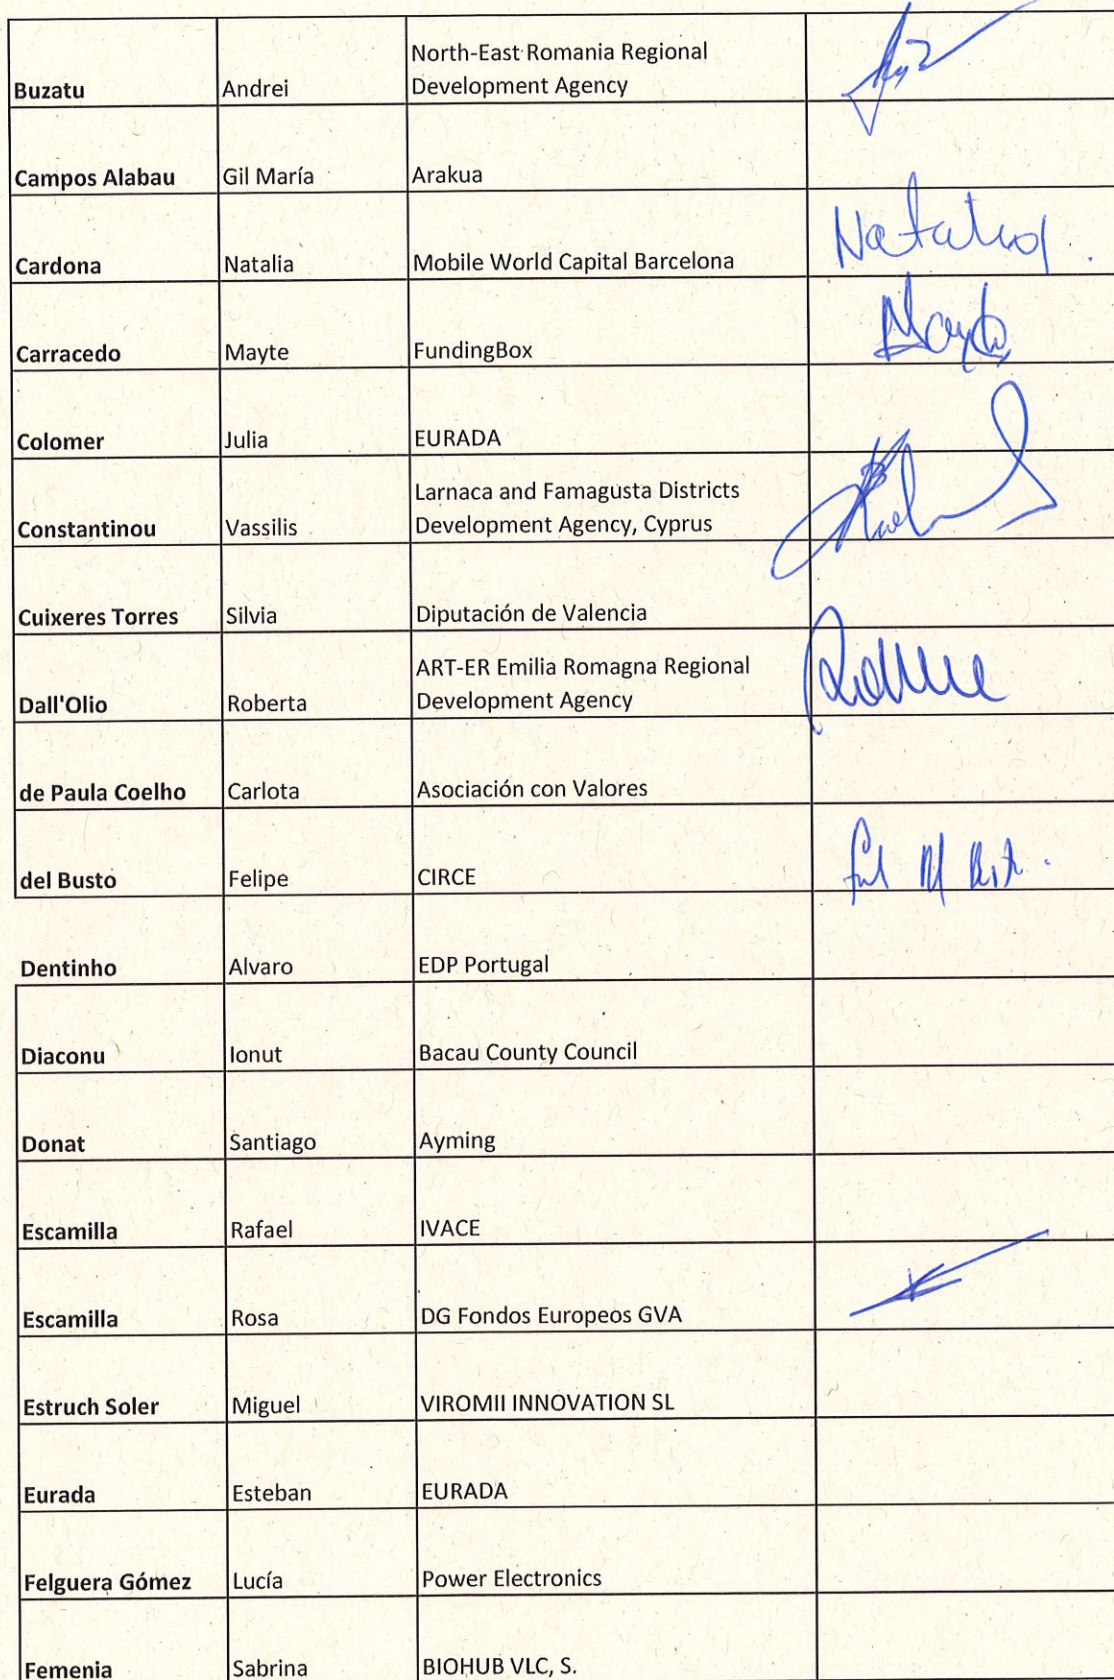 North-East Romania Regional
Buzatu Andrei Development Agency
Campos Alabau Gil María Arakua
Cardona Natalia Mobile World Capital Barcelona Natalia
Carracedo Mayte FundingBox Mayte
Colomer Julia EURADA
Larnaca and Famagusta Districts
Constantinou Vassilis Development Agency, Cyprus
Cuixeres Torres Silvia Diputación de Valencia
ART-ER Emilia Romagna Regional
Dall'Olio Roberta Development Agency
de Paula Coelho Carlota Asociación con Valores
del Busto Felipe CIRCE
Dentinho Alvaro EDP Portugal
Diaconu Ionut Bacau County Council
Donat Santiago Ayming
Escamilla Rafael IVACE
Escamilla Rosa DG Fondos Europeos GVA
Estruch Soler Miguel VIROMII INNOVATION SL
Eurada Esteban EURADA
Felguera Gómez Lucía Power Electronics
Femenia Sabrina BIOHUB VLC, S.